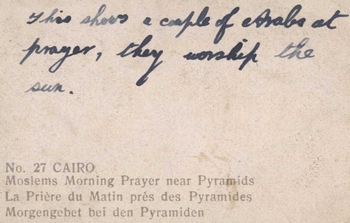 This shows a couple of Arabs at
prayer, they worship the
sun.
No. 27 CAIRO
Moslems Morning Prayer near Pyramids
La Prière du Matin près des Pyramides
Morgengebet bei den Pyramiden